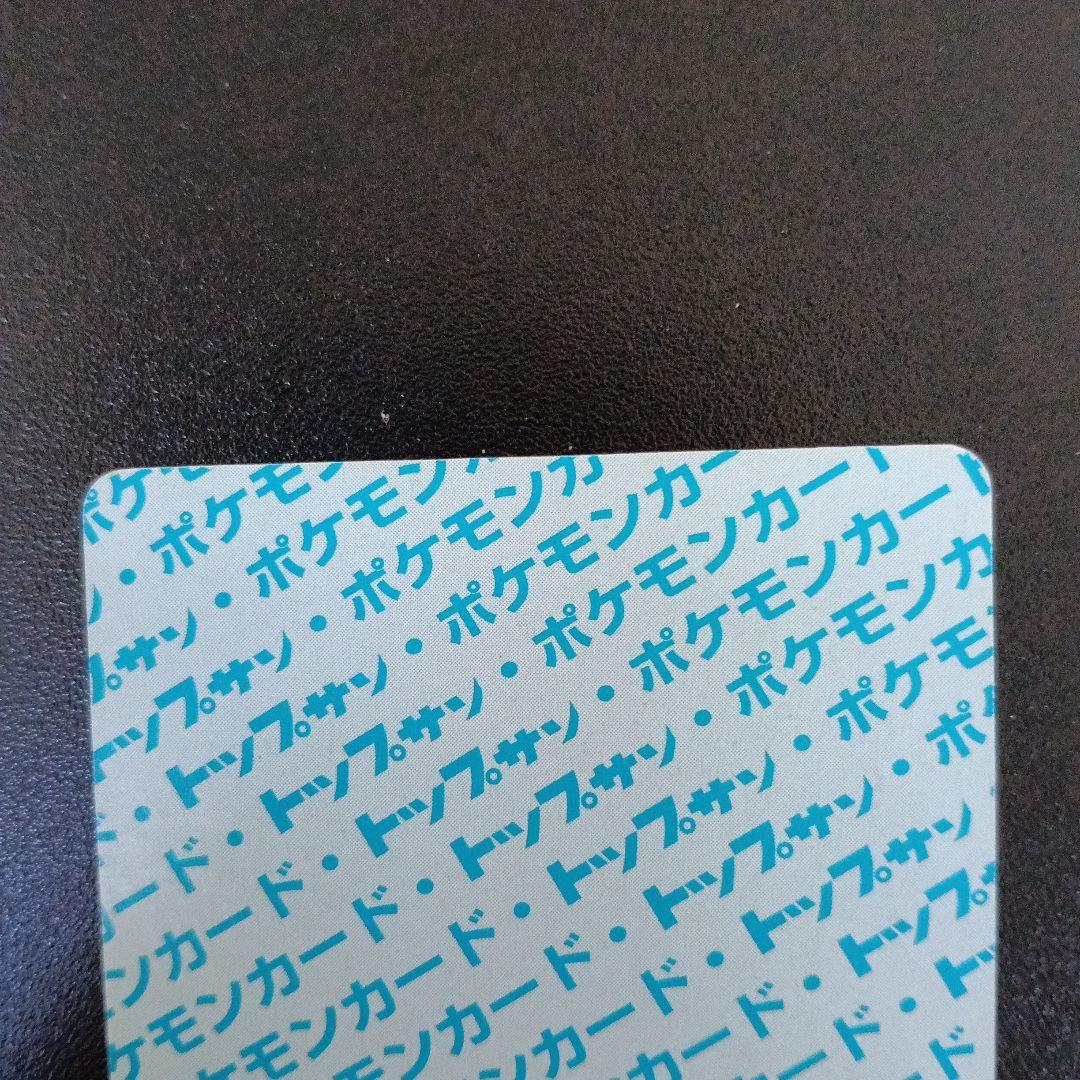 ポケモ
・ポケモン
プサン・ポケモン
トップサン・ポケモンカ
・トップサン・ポケモンカー
ード・トップサン・ポケモンカード
ンカード・トップサン・ポケモンカード
ケモンカード・トップサン・ポケモンカ
モンカード・トップサン・ポケモ
ンカード・トップサン・ポ
カード・トップサン・
ード・トップ
ド・ト
ド